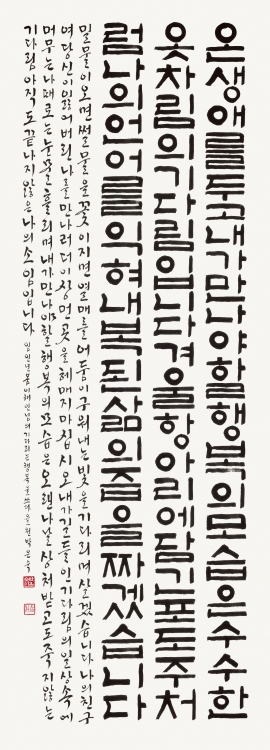 온생애를두고내가만나야할행복의모습은수수한
옷차림의기다림입니다겨울항아리에담긴포도주처
럼나의언어를익혀내복된삶의즙을짜겠습니다
밀물이오면썰물을꽃이지면열매를어둠이구워내는빛을기다리며살겠습니다나의친구
여당신이잃어버린나를만나러더이상먼곳을헤매지마십시오내가길들인기다림의일상속에
머무는나때로는눈물을흘리며내가만나야할행복의모습은오랜나날상처받고도죽지않는
기다림아직도끝나지않은나의소임입니다 임인년봄이해인님의기다리는행복을쓰다